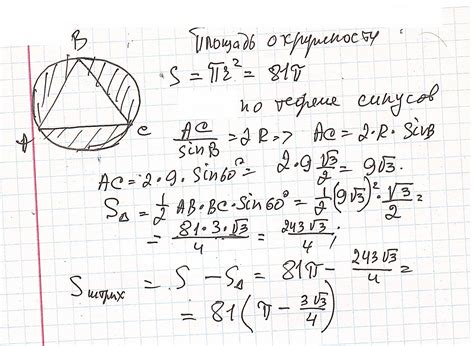 B
A
C
площадь окружности
S = πr² = 81π
по теореме синусов
AC/sinB = 2R => AC = 2·R·SinB
AC = 2·9·Sin60° = 2·9√3/2 = 9√3.
S△ = 1/2 AB·BC·Sin60° = 1/2(9√3)²·√3/2 =
= 81·3·√3/4 = 243√3/4;
Sштрих = S – S△ = 81π – 243√3/4 =
= 81(π – 3√3/4)